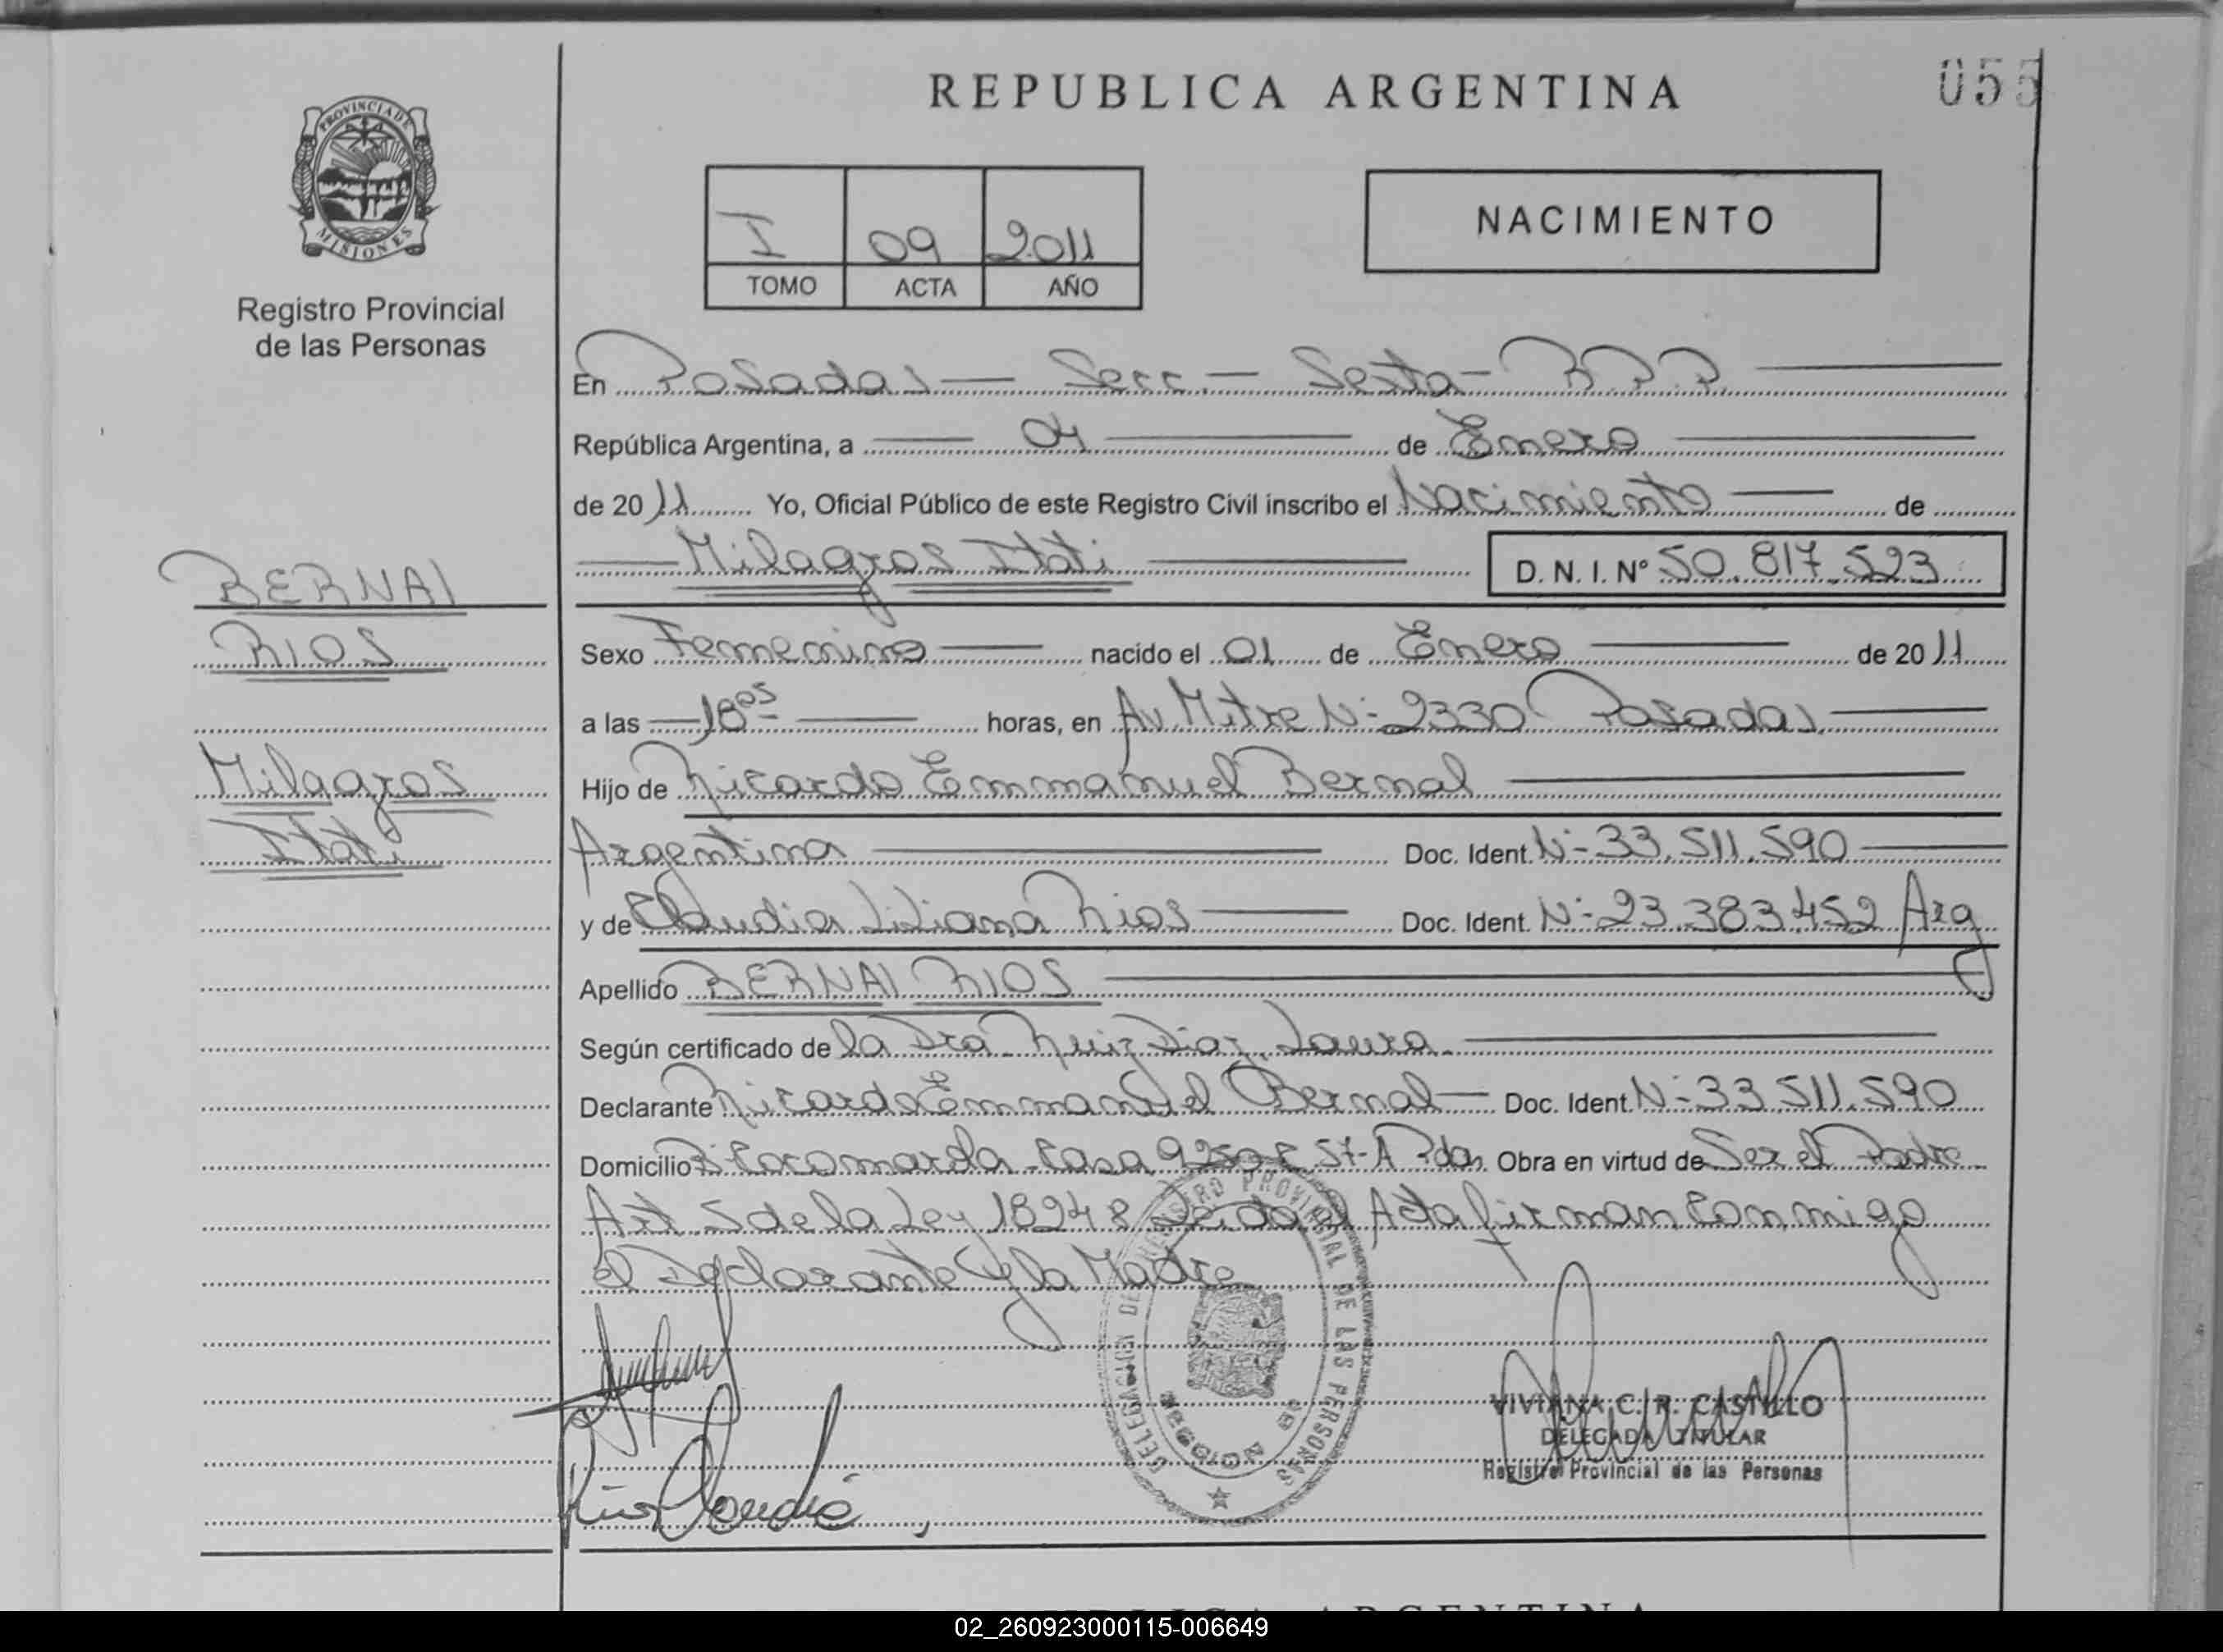 REPUBLICA ARGENTINA
055
PROVINCIA DE
MISIONES
Registro Provincial
de las Personas
I 09 2011
TOMO ACTA AÑO
NACIMIENTO
En Posadas — Secc. — Sexta - R.P.P.
República Argentina, a 04 de Enero
de 2011 Yo, Oficial Público de este Registro Civil inscribo el Nacimiento de
Milagros Itati D.N.I. Nº 50.817.523
BERNAL
RIOS
Milagros
Itati
Sexo Femenino nacido el 01 de Enero de 2011
a las 18 05 horas, en Av. Mitre Nº 2330 Posadas
Hijo de Ricardo Emmanuel Bernal
Argentina Doc. Ident. Nº 33.511.590
y de Claudia Liliana Rios Doc. Ident. Nº 23.383.452 Arg
Apellido BERNAL RIOS
Según certificado de la Dra Ruiz Diaz, Laura
Declarante Ricardo Emmanuel Bernal Doc. Ident. Nº 33.511.590
Domicilio Casa Pdas Obra en virtud de Ser el Padre
Art. 5 de la Ley 18248 Leida el Acta firman conmigo
el Declarante y la Madre
DELEGACION DE REGISTRO PROVINCIAL DE LAS PERSONAS
SECCION 6a
Rios Claudia
VIVIANA C. R. CASTILLO
DELEGADA TITULAR
Registro Provincial de las Personas
02_260923000115-006649